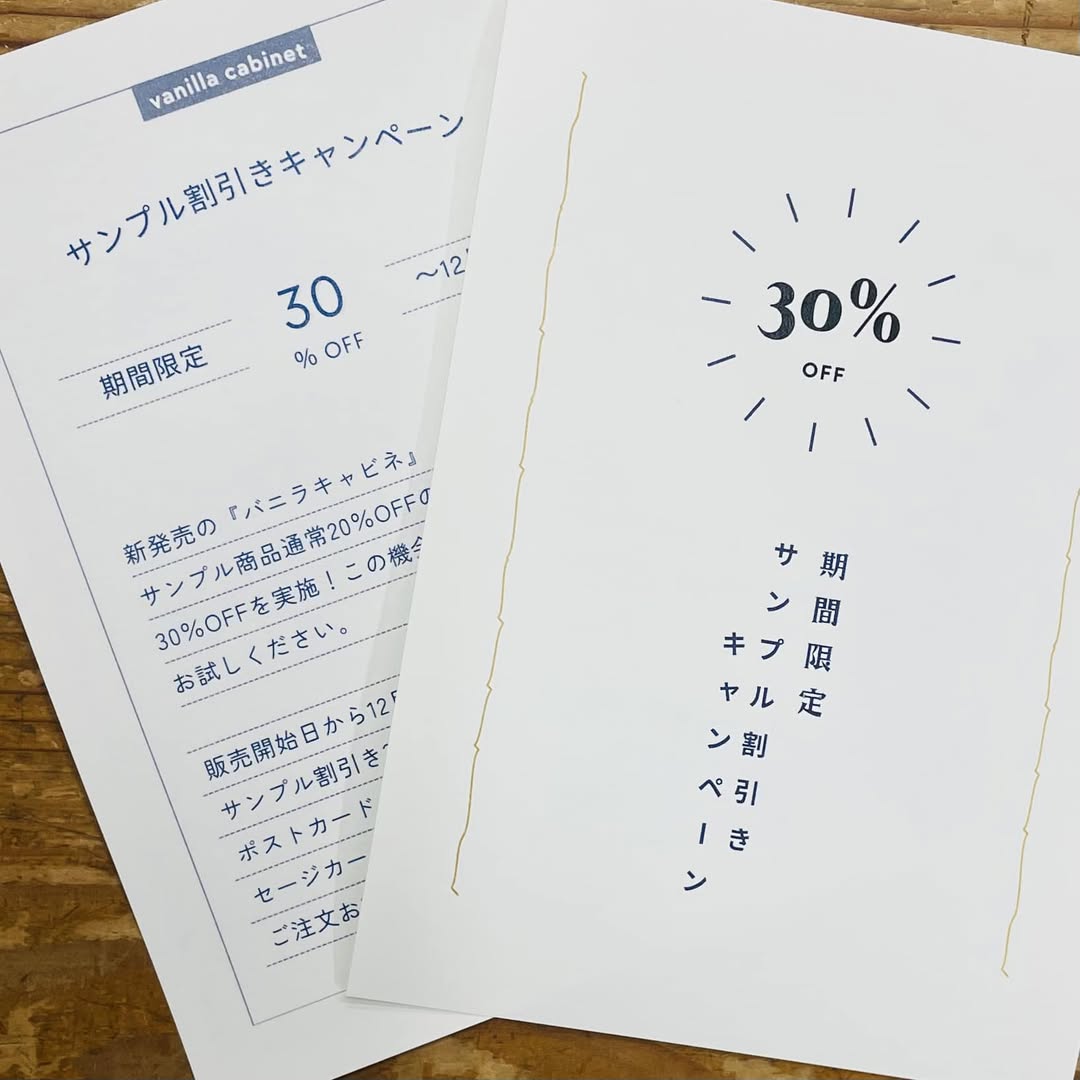 vanilla cabinet
サンプル割引きキャンペーン
期間限定
30
% OFF
〜12
新発売の『バニラキャビネ』
サンプル商品通常20%OFFの
30%OFFを実施！この機会
お試しください。
販売開始日から12月
サンプル割引き
ポストカード
セージカー
ご注文お
30%
OFF
期間限定
サンプル割引き
キャンペーン